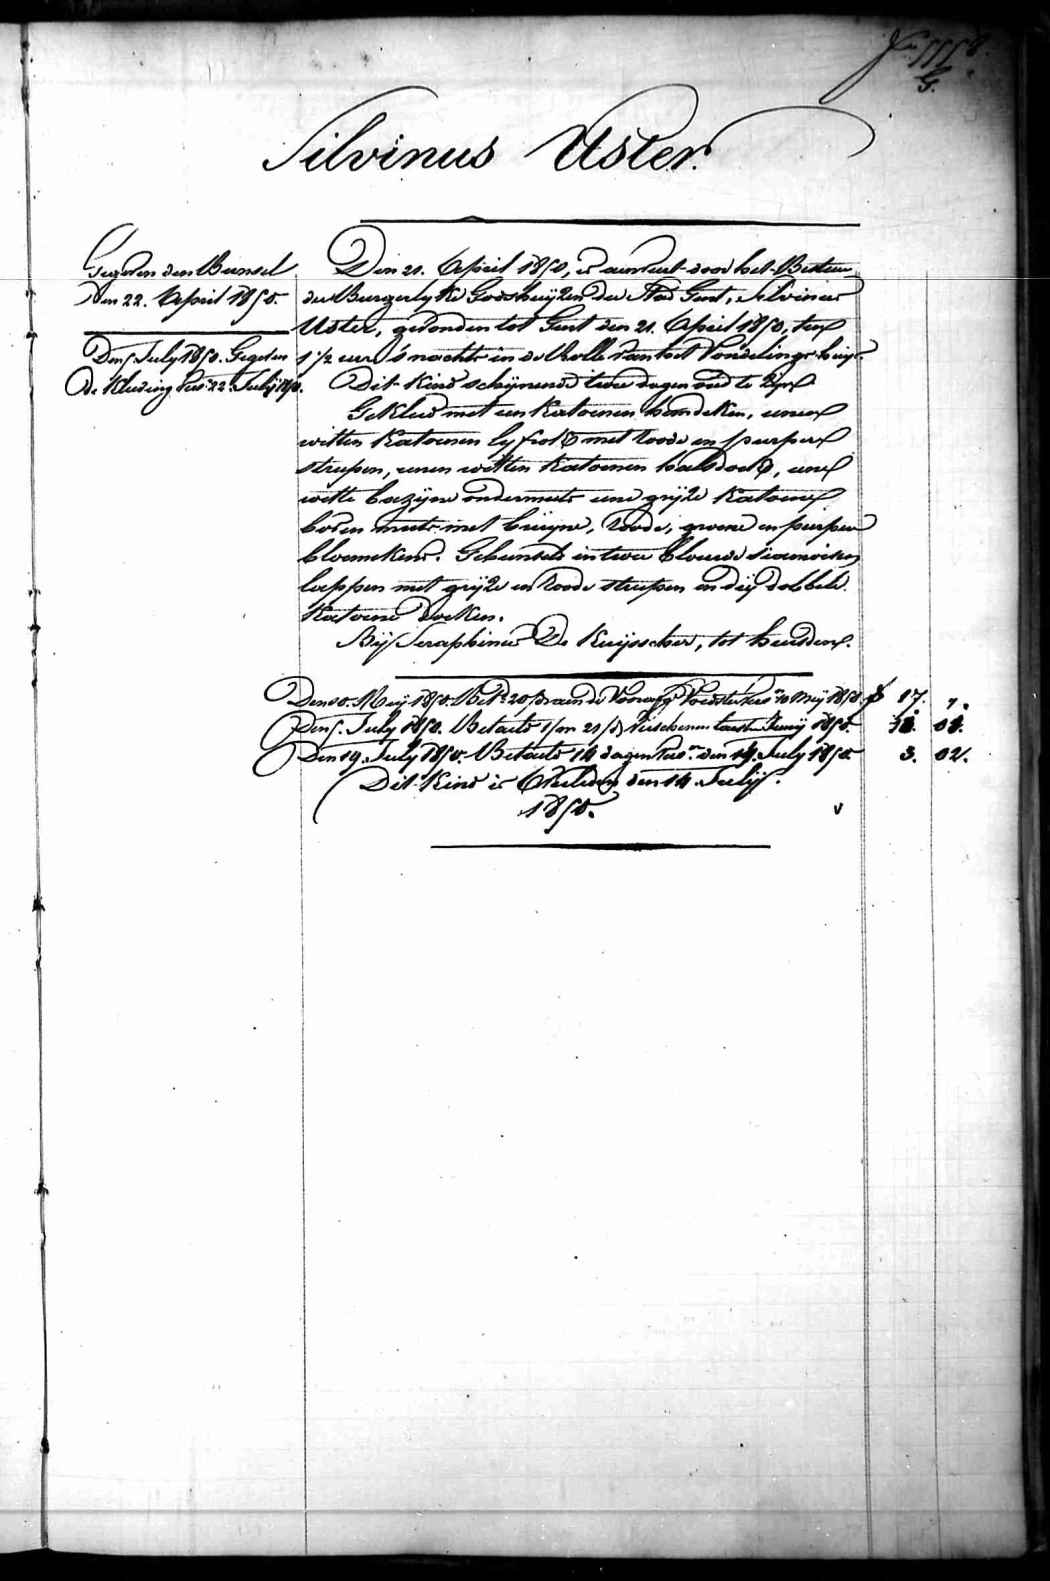 G.
Silvinus Uster.
Gegeven den Bunsel
den 22. April 1850.
Den 5. July 1850. Gegeven
de Kleeding 22. July 1850.
Den 21. April 1850, is aenveert door het Bestuer
der Burgerlyke Godshuyzen der Stad Gent, Silvinus
Uster, gevonden tot Gent den 21. April 1850, ten
1 1/2 ure 's nachts in de Rolle van het Vondelingshuys.
Dit Kind schynende twee dagen oud te zyn
Gekleed met een Katoenen hemdeken, eenen
witten Katoenen lyfrok met roode en purper
streepen, eenen witten Katoenen halsdoek, eene
witte bazyne ondermuts eene gryze Katoene
boven muts met bruyne, roode, groene en purper
bloemekens. Gebunseld in twee blauwe siamoisen
lappen met gryze en roode streepen en dry dobbele
Katoene doeken.
By Seraphinus De Kuysscher, tot Heusden.
Den 10. Mey 1850. 10 Mey 1850 17. ".
Den 5. July 1850. Betaeld Juny 1850.
Den 19. July 1850. Betaeld 14 dagen den 14. July 1850 3. 02.
Dit Kind is Overleden den 14. July
1850.